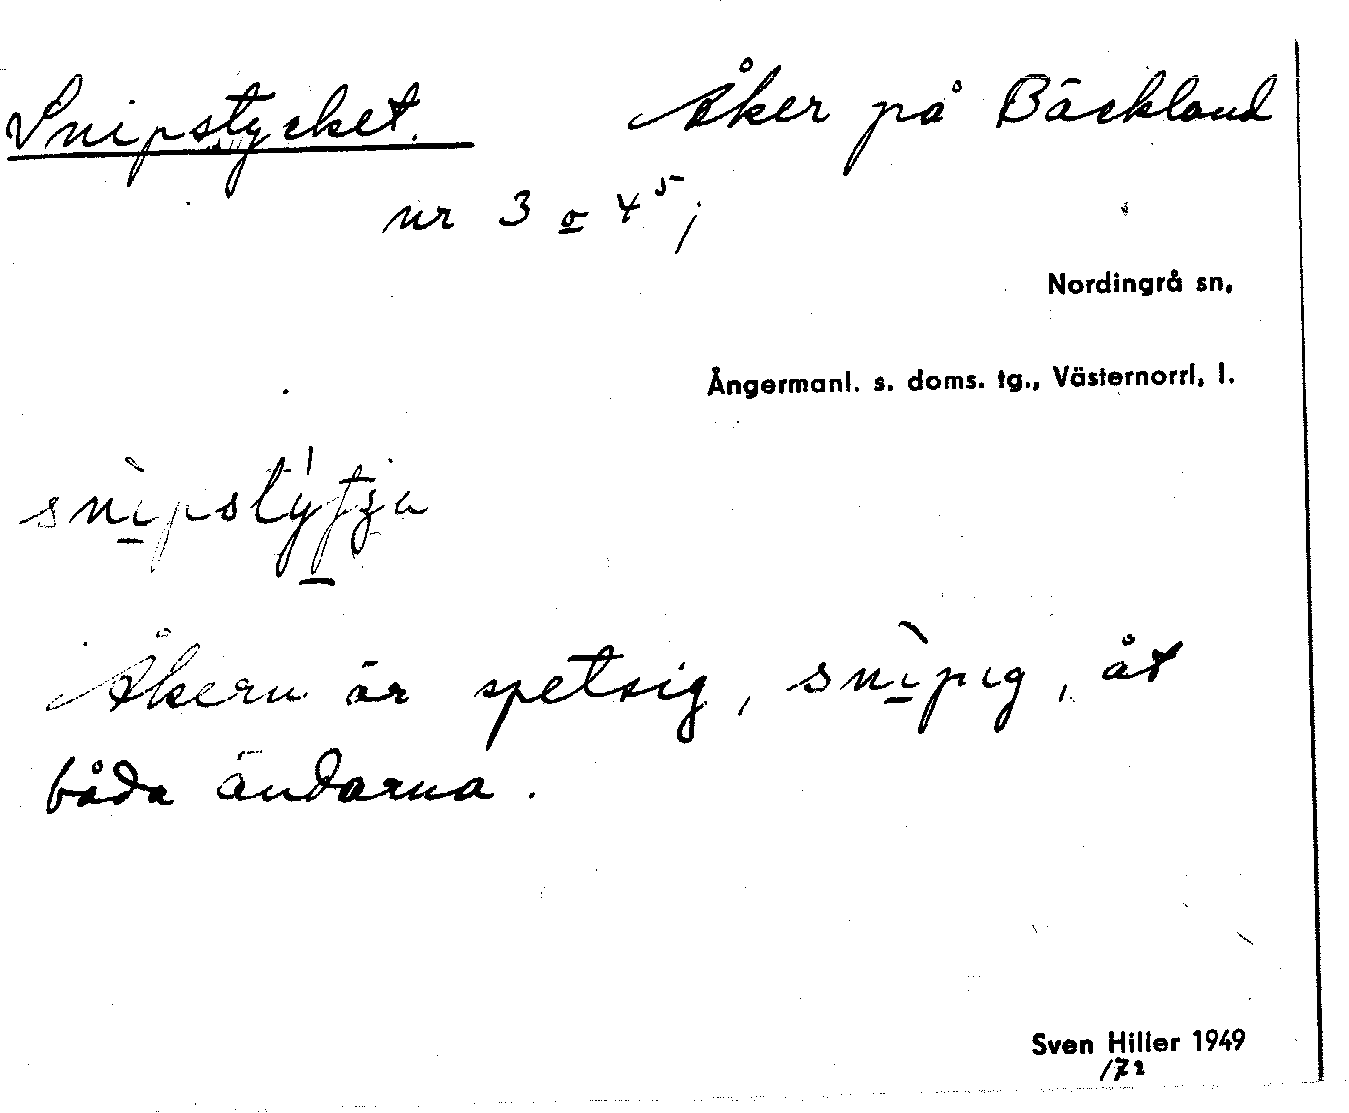 Snipstycket. Åker på Bäckland
nr 3 o 4⁵;
Nordingrå sn,
Ångermanl. s. doms. tg., Västernorrl. l.
Åkern är spetsig, snìpig, åt
båda ändarna.
Sven Hiller 1949
172